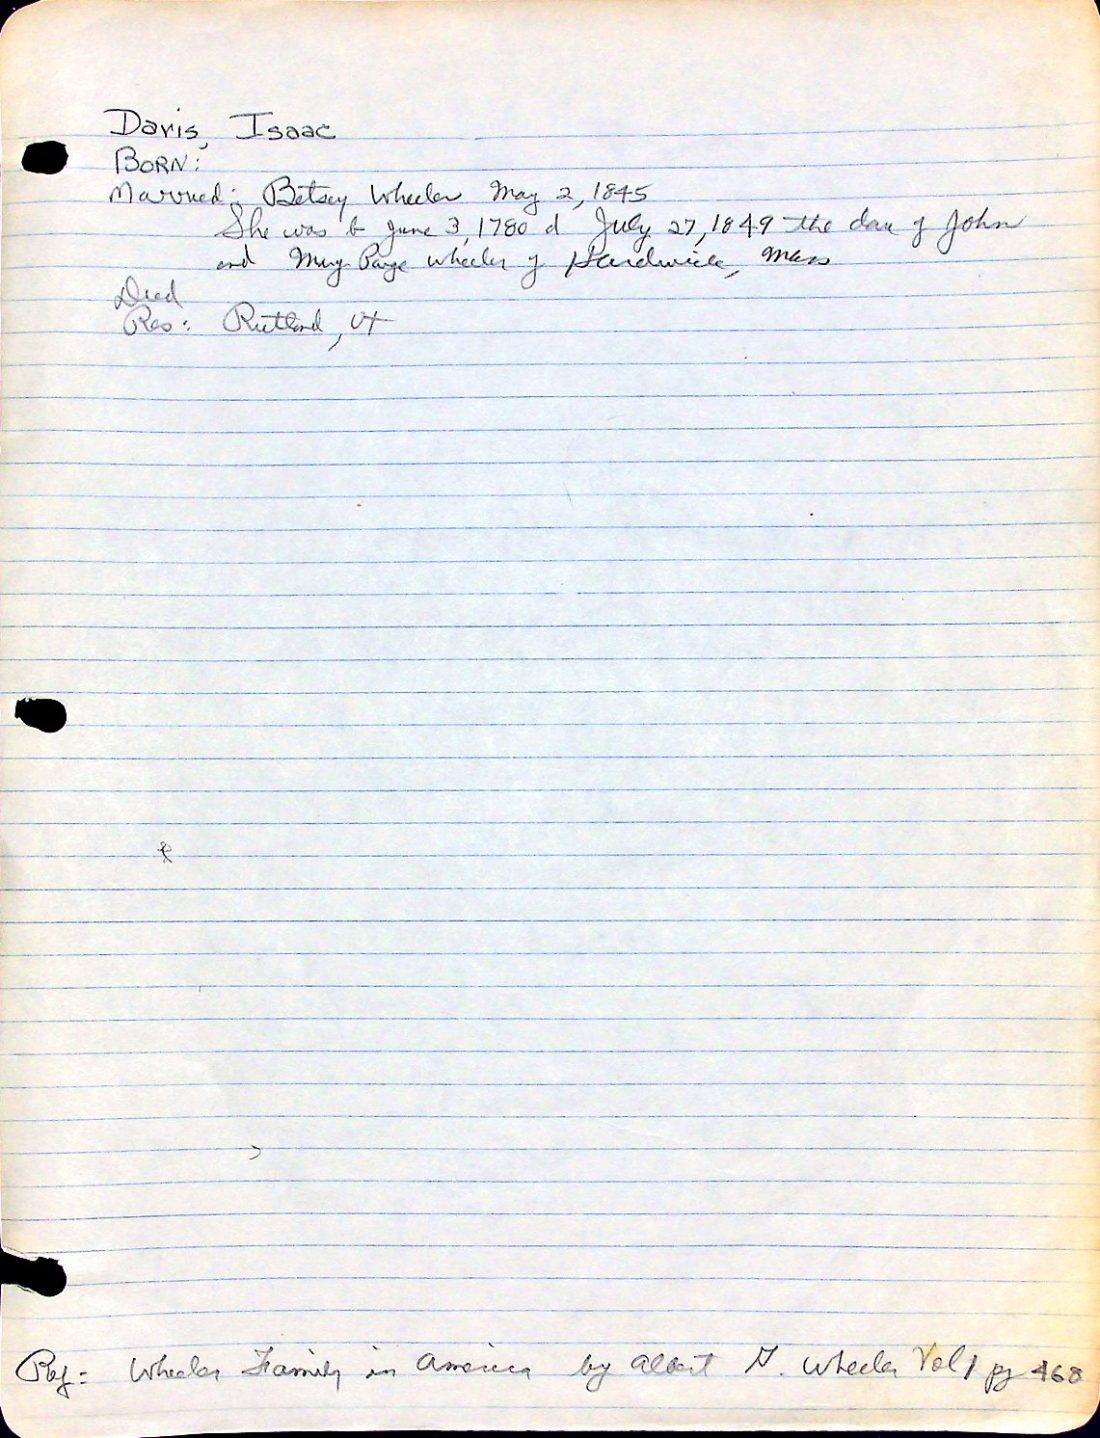 Davis, Isaac
BORN:
Married: Betsey Wheeler May 2, 1845
She was b June 3, 1780 d July 27, 1849 the dau of John
and Mary Paige Wheeler of Hardwick, Mass
Died
Res: Rutland, Vt
Ref: Wheeler Family in America by Albert G. Wheeler Vol 1 pg 468